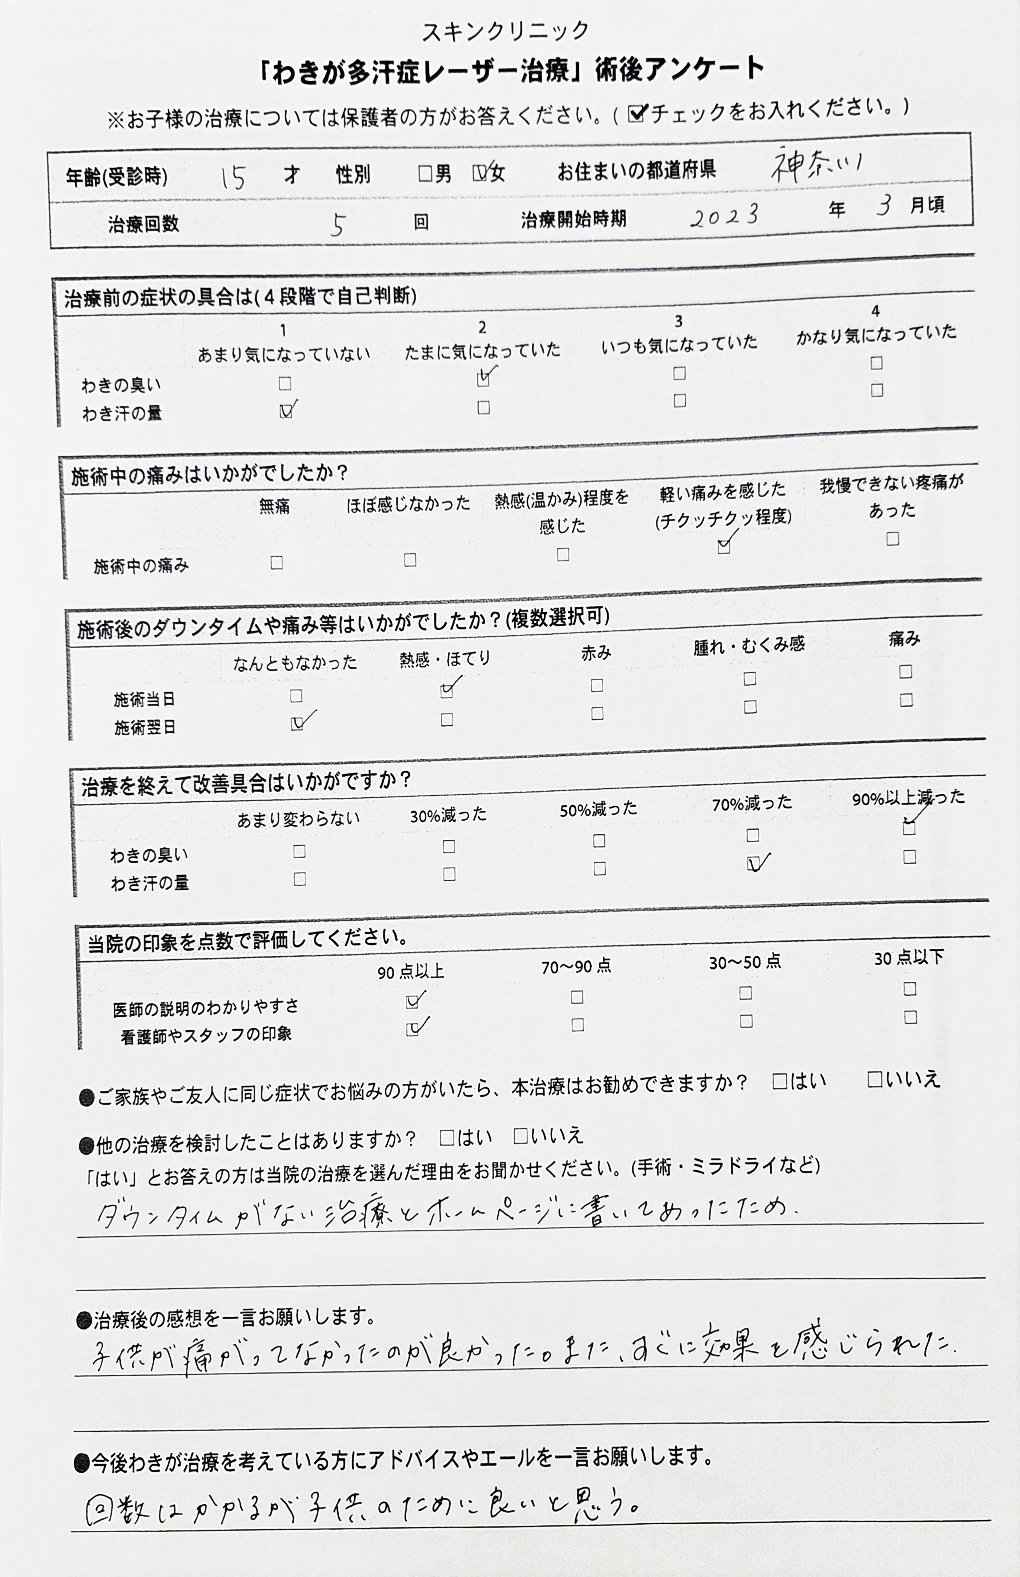 スキンクリニック
「わきが多汗症レーザー治療」術後アンケート
※お子様の治療については保護者の方がお答えください。(☑チェックをお入れください。)
年齢(受診時) 15 才 性別 □男 ☑女 お住まいの都道府県 神奈川
治療回数 5 回 治療開始時期 2023 年 3 月頃
治療前の症状の具合は(4段階で自己判断)
1 2 3 4
あまり気になっていない たまに気になっていた いつも気になっていた かなり気になっていた
わきの臭い □ ☑ □ □
わき汗の量 ☑ □ □ □
施術中の痛みはいかがでしたか?
無痛 ほぼ感じなかった 熱感(温かみ)程度を 軽い痛みを感じた 我慢できない疼痛が
感じた (チクッチクッ程度) あった
施術中の痛み □ □ □ ☑ □
施術後のダウンタイムや痛み等はいかがでしたか?(複数選択可)
なんともなかった 熱感・ほてり 赤み 腫れ・むくみ感 痛み
施術当日 □ ☑ □ □ □
施術翌日 ☑ □ □ □ □
治療を終えて改善具合はいかがですか?
あまり変わらない 30%減った 50%減った 70%減った 90%以上減った
わきの臭い □ □ □ □ ☑
わき汗の量 □ □ □ ☑ □
当院の印象を点数で評価してください。
90点以上 70〜90点 30〜50点 30点以下
医師の説明のわかりやすさ ☑ □ □ □
看護師やスタッフの印象 ☑ □ □ □
●ご家族やご友人に同じ症状でお悩みの方がいたら、本治療はお勧めできますか? □はい □いいえ
●他の治療を検討したことはありますか? □はい □いいえ
「はい」とお答えの方は当院の治療を選んだ理由をお聞かせください。(手術・ミラドライなど)
ダウンタイムがない治療とホームページに書いてあったため.
●治療後の感想を一言お願いします。
子供が痛がってなかったのが良かった。また、すぐに効果を感じられた.
●今後わきが治療を考えている方にアドバイスやエールを一言お願いします。
回数はかかるが子供のために良いと思う。